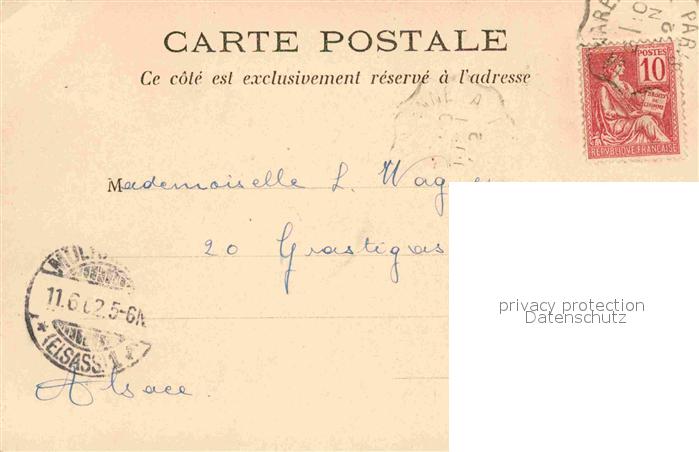 CARTE POSTALE
Ce côté est exclusivement réservé à l'adresse
10
DROITS DE L'HOMME
REPUBLIQUE FRANÇAISE
Mademoiselle L. Wagner
20 Grastigas
11.6.02.5-6N
* (ELSASS) 1 *
Alsace
privacy protection
Datenschutz